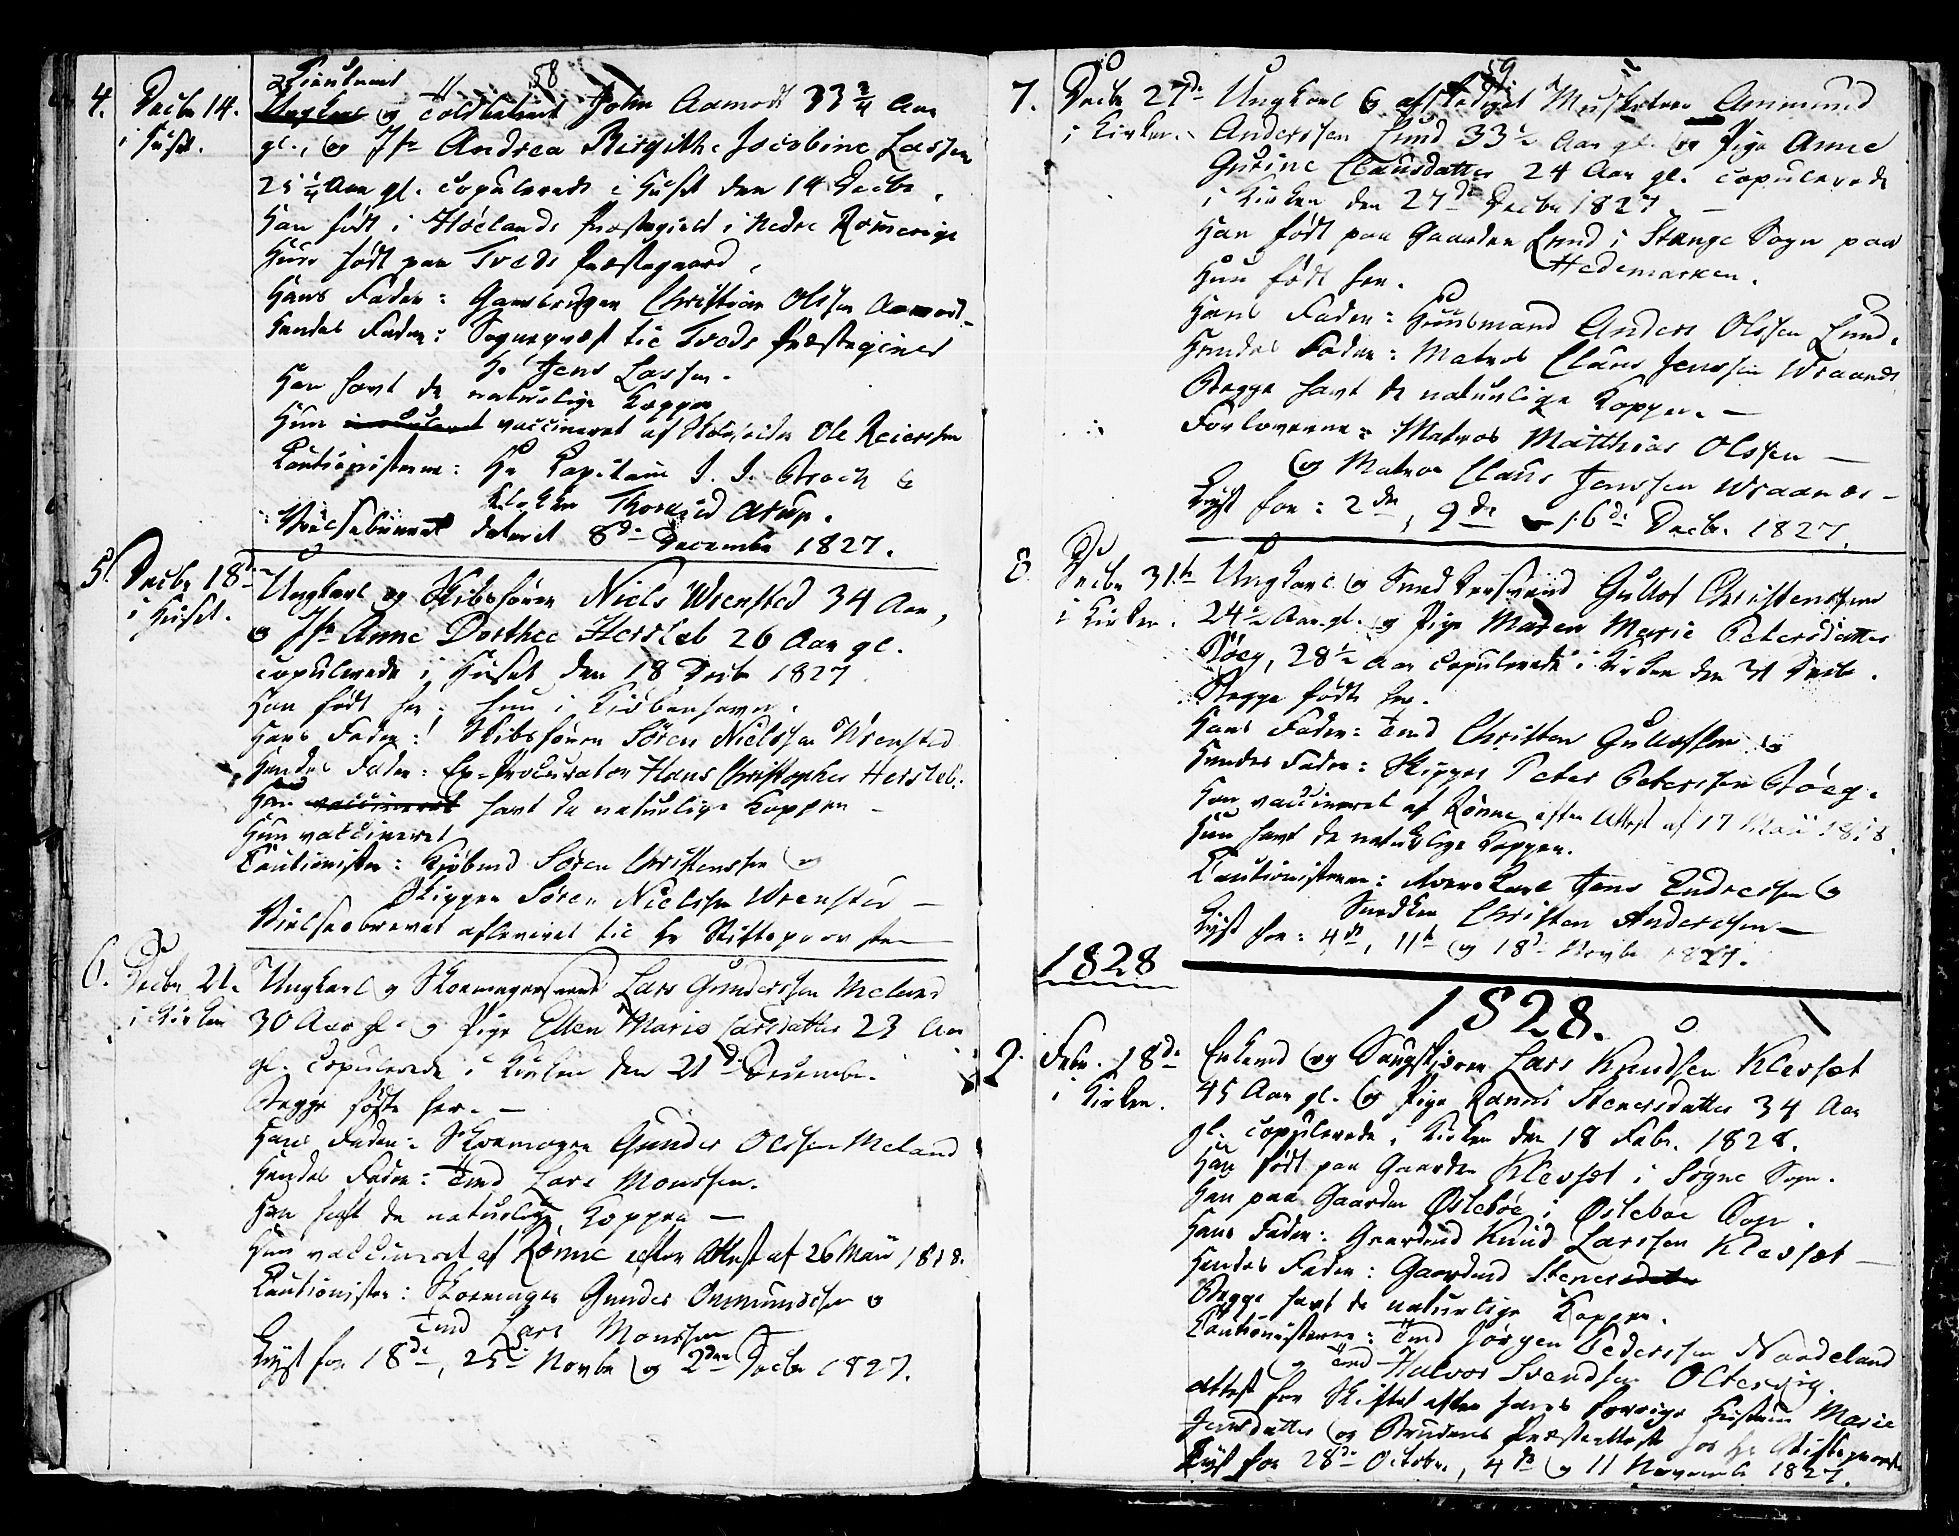 58
Lieutenant
4. Decbr 14. Ungkarl og Toldbetient John Aamodt 33 3/4 Aar
i Huset. gl., og Jfr Andrea Birgithe Jacobine Lassen
25 1/4 Aar gl. copulerede i Huset den 14 Decbr.
Han født i Høelands Præstegield i Nedre Romerige
Hun født paa Tveds Præstegaard.
Hans Fader: Christian Olssen Aamodt.
Hendes Fader: Sognepræst til Tveds Præstegield
Hr Jens Lassen.
Han havt de naturlige Kopper
Hun vaccineret af Ole Reierssen
Cautionisterne: Hr Capitain J. J. Broch &
Klokker Thorvild Arup.
Vielsebrevet dateret 8de December 1827.
5. Decbr 18de Ungkarl og Skibsfører Niels Wrensted 34 Aar,
i Huset. og Jfr Anne Dorthee Hersleb 26 Aar gl.
copulerede i Huset den 18 Decbr 1827.
Han født her; hun i Kiøbenhavn.
Hans Fader: Skibsfører Søren Nielssen Wrensted
Hendes Fader: Ex-Procurator Hans Christopher Hersleb.
Han vaccineret havt de naturlige Kopper -
Hun vaccineret
Cautionister: Kjøbmd Søren Christenssen og
Skipper Søren Nielssen Wrensted -
Vielsesbrevet afleveret til Hr Stiftsprovsten
6. Decbr 21. Ungkarl og Skomagersvend Lars Gunderssen Meland
i Kirken 30 Aar gl. og Pige Ellen Marie Larsdatter 23 Aar
gl. Copulerede i Kirken den 21de Decembr.
Begge fødte her. -
Hans Fader: Skomager Gunder Olssen Meland
Hendes Fader: Tmd Lars Monssen.
Han haft de naturlige Kopper -
Hun vaccineret af Rønne efter Attest af 26 Maii 1818.
Cautionister: Skomager Gunder Ommundssen og
Tmd Lars Monssen
Lyst for 18de, 25de Novbr og 2den Decbr 1827.
59
7. Decbr 27de Ungkarl & afskediget Musketeer Ommund
i Kirken. Anderssen Lund 33 1/2 Aar gl. og Pige Anne
Gurine Clausdatter 24 Aar gl. copulerede
i Kirken den 27de Decbr 1827. -
Han født paa Gaarden Lund i Stange Sogn paa
Hedemarken.
Hun født her.
Hans Fader: Huusmand Anders Olssen Lund.
Hendes Fader: Matros Claus Jenssen Wraanes
Begge havt de naturlige Kopper. -
Forloverne: Matros Matthias Olssen -
og Matros Claus Jenssen Wraanes -
Lyst for: 2den, 9de og 16de Decbr. 1827.
8. Decbr 31te Ungkarl og Gullof Christenssen
i Kirken. 24 1/2 Aar gl. og Pige Maren Marie Petersdatter
Bøeg, 28 1/2 Aar Copulerede i Kirken den 31 Decbr.
Begge fødte her.
Hans Fader: Tmd Christen Gullofsen og
Hendes Fader: Skipper Peter Peterssen Bøeg.
Han vaccineret af Rønne efter Attest af 17 Maii 1818.
Hun havt de naturlige Kopper.
Cautionisterne: Jens Endressen og
Snedker Christen Anderssen -
Lyst for: 4de, 11te og 18de Novbr 1827.
1828
1828.
1. Febr. 18de Enkemd og Lars Knudsen Klepset
i Kirken. 45 Aar gl. og Pige Ranni Stenersdatter 34 Aar
gl. copulerede i Kirken den 18 Febr. 1828.
Han født paa Gaarden Klepset i Søgne Sogn.
Hun paa Gaarden Østebøe i Østeboe Sogn.
Hans Fader: Gaardmd Knud Larssen Klepset -
Hendes Fader: Gaardmd Stenersdatter
Begge havt de naturlige Kopper.
Cautionisterne: Tmd Jørgen Pederssen Nordeland
og Tmd Halvor Svendsen Oltervig.
Attest fra Skiftet efter hans forrige Hustrue Marie
Jensdatter og Brudens Præsteattest hos Hr Stiftsprovsten
Lyst for 28de Octobr, 4de og 11 Novembr 1827.